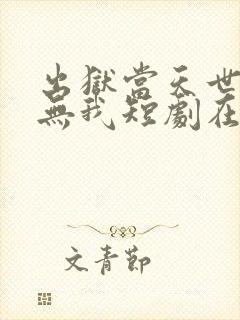 出獄當天世
無我短劇在
文青節